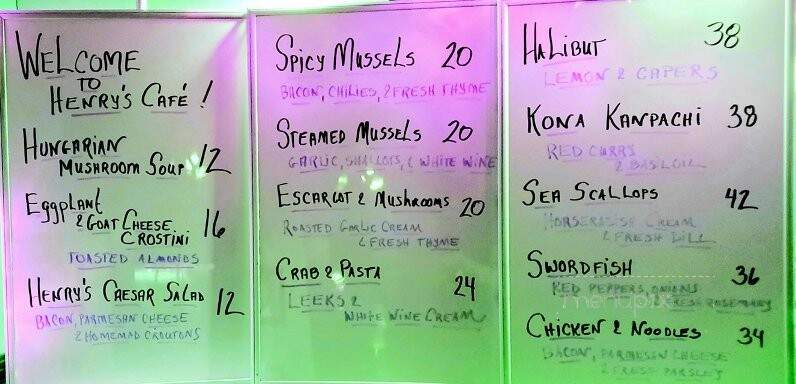 WELCOME
TO
HENRY'S CAFÉ!
HUNGARIAN
MUSHROOM SOUP 12
EGGPLANT
& GOAT CHEESE
CROSTINI 16
TOASTED ALMONDS
HENRY'S CAESAR SALAD 12
BACON, PARMESAN CHEESE
& HOMEMAD CROUTONS
SPICY MUSSELS 20
BACON, CHILIES, & FRESH THYME
STEAMED MUSSELS 20
GARLIC, SHALLOTS, & WHITE WINE
ESCARGOT & MUSHROOMS 20
ROASTED GARLIC CREAM
& FRESH THYME
CRAB & PASTA 24
LEEKS &
WHITE WINE CREAM
HALIBUT 38
LEMON & CAPERS
KONA KANPACHI 38
RED CURRY
& BASIL OIL
SEA SCALLOPS 42
HORSERADISH CREAM
& FRESH DILL
SWORDFISH 36
RED PEPPERS, ONIONS
& FRESH ROSEMARY
CHICKEN & NOODLES 34
BACON, PARMESAN CHEESE
& FRESH PARSLEY